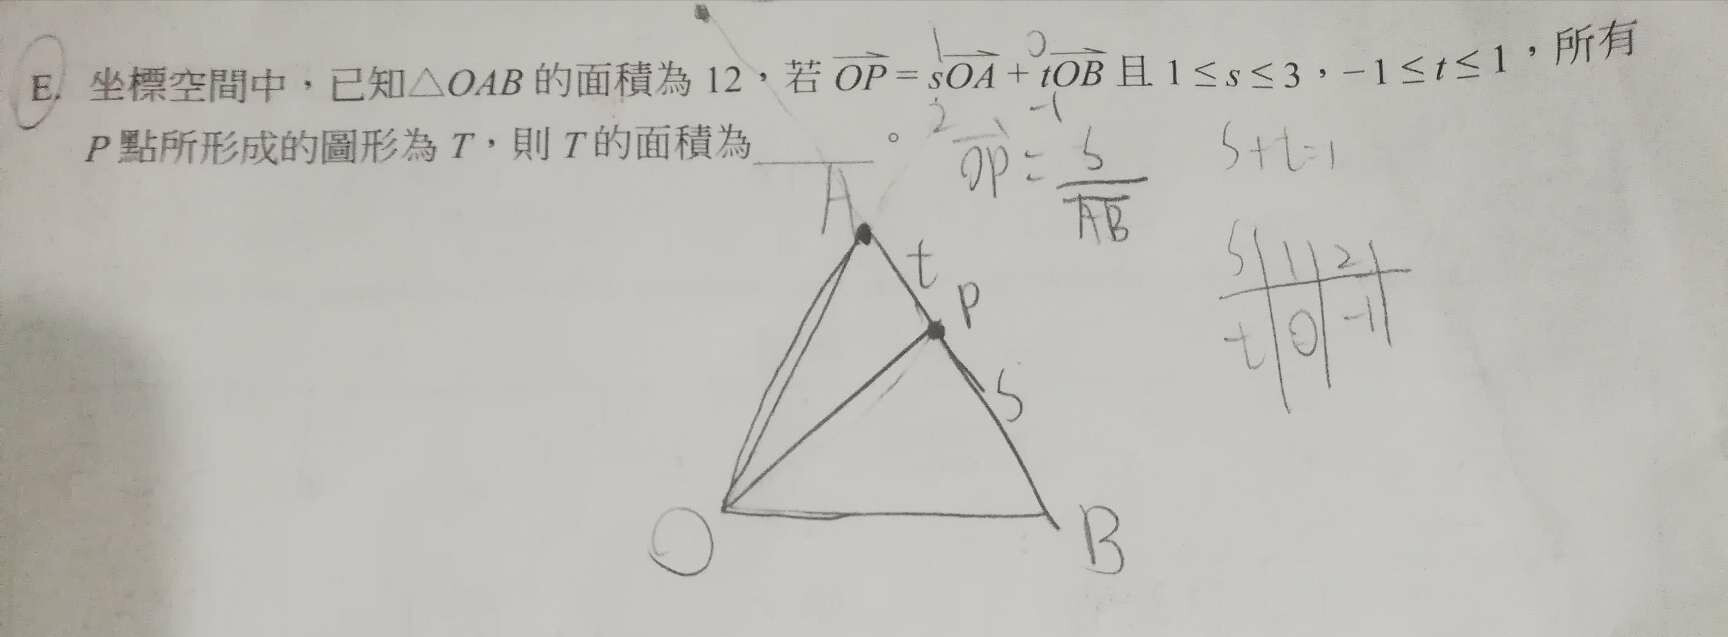 E. 坐標空間中，已知△OAB 的面積為 12，若 OP = sOA + tOB 且 1 ≤ s ≤ 3，-1 ≤ t ≤ 1，所有
P 點所形成的圖形為 T，則 T 的面積為______。
1 0
2 -1
OP = S/AB
S+t=1
S | 1 | 2 |
t | 0 | -1 |
A
t
P
S
O
B